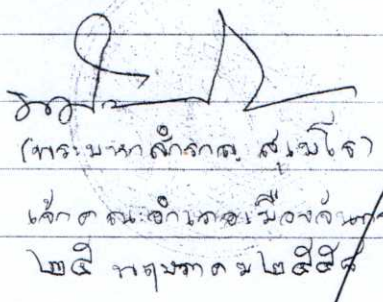 (พระมหาสำราญ สุเมโธ)
เจ้าคณะอำเภอเมืองจันทร์
๒๕ พฤษภาคม ๒๕๕๘